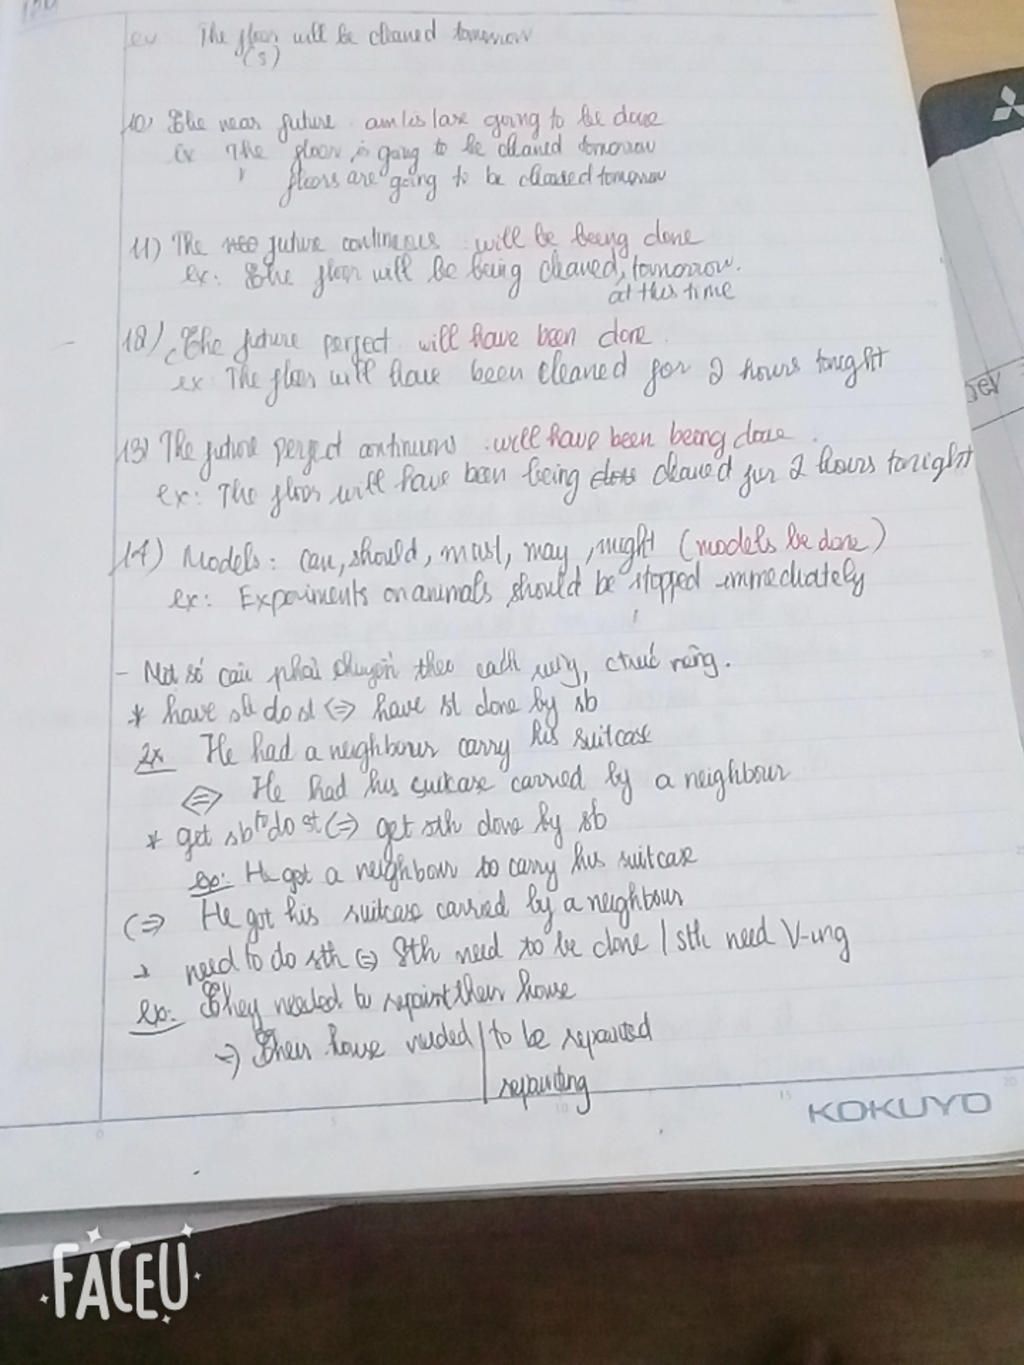 ex The floor will be cleaned tomorrow
(s)
10) The near future am/is/are going to be done
ex The floor is going to be cleaned tomorrow
floors are going to be cleaned tomorrow
11) The future continuous : will be being done
ex: The floor will be being cleaned, tomorrow.
at this time
12) The future perfect will have been done.
ex: The floor will have been cleaned for 2 hours tonight
13) The future perfect continuous : will have been being done.
ex: The floor will have been being cleaned for 2 hours tonight
14) Models: can, should, must, may, might (models be done)
ex: Experiments on animals should be stopped immediately
- Một số câu phải chuyển theo cách riêng, ctrúc riêng.
* have sb do st <=> have st done by sb
Ex He had a neighbour carry his suitcase
<=> He had his suitcase carried by a neighbour
* get sb to do st <=> get sth done by sb
ex: He got a neighbour to carry his suitcase
<=> He got his suitcase carried by a neighbour
need to do sth <=> Sth need to be done / sth need V-ing
ex: They needed to repaint their house
=> Their house needed to be repainted
repainting
KOKUYO
FACEU